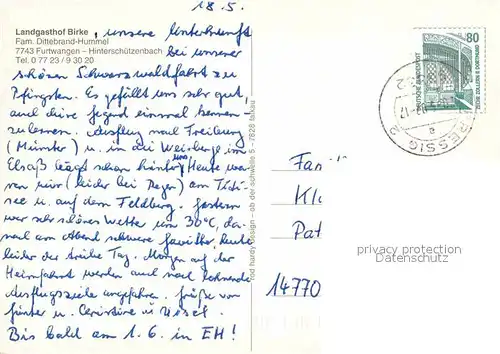 18.5.
Landgasthof Birke, unsere Unterkunft
Fam. Dittebrand-Hummel
7743 Furtwangen – Hinterschützenbach bei unserer
Tel. 0 77 23 / 9 30 20
schönen Schwarzwaldfahrt zu
Pfingsten. Es gefällt uns sehr gut,
auch diese Gegend einmal kennen-
zulernen. Ausflug nach Freiburg
(Münster) u. in die Weinberge im
Elsaß liegt schon hinter uns. Heute waren
wir (leider bei Regen) am Titi-
see u. auf dem Feldberg. Gestern
war sehr schönes Wetter um 30°C, da-
nach am Abend schwere Gewitter heute
leider der trübe Tag. Morgen auf der
Heimfahrt werden auch noch lohnende
Ausflugsziele angefahren. Grüße von
Günter u. Christine u.
Bis bald am 1.6. in EH!
rod hardy design - ob der schwelle 5 - 7828
80
DEUTSCHE BUNDESPOST
ZECHE ZOLLERN II DORTMUND
Fam
Kl
Pat
14770
privacy protection
Datenschutz